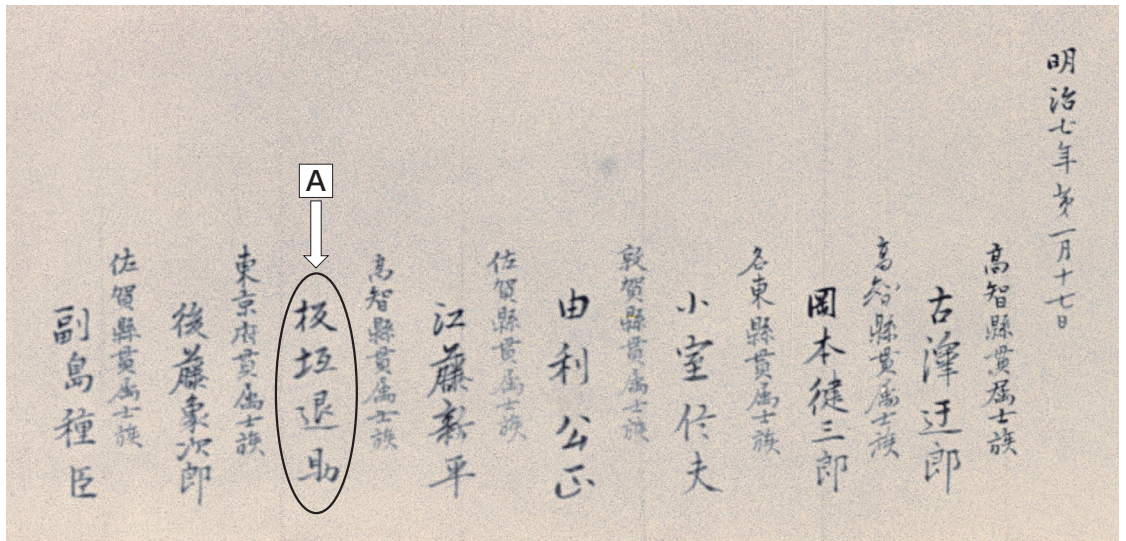 明治七年第一月十七日
高智縣貫属士族
古澤迂郎
高智縣貫属士族
岡本健三郎
名東縣貫属士族
小室信夫
敦賀縣貫属士族
由利公正
佐賀縣貫属士族
江藤新平
高智縣貫属士族
板垣退助
東京府貫属士族
後藤象次郎
佐賀縣貫属士族
副島種臣
A